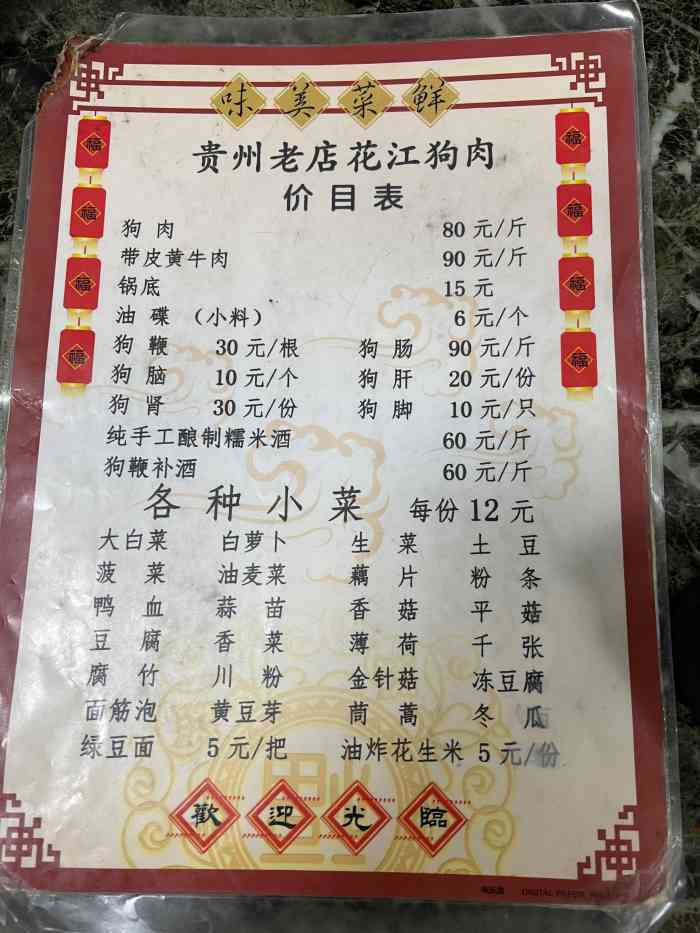 味美菜鲜
贵州老店花江狗肉
价目表
狗肉 80元/斤
带皮黄牛肉 90元/斤
锅底 15元
油碟（小料） 6元/个
狗鞭 30元/根 狗肠 90元/斤
狗脑 10元/个 狗肝 20元/份
狗肾 30元/份 狗脚 10元/只
纯手工酿制糯米酒 60元/斤
狗鞭补酒 60元/斤
各种小菜 每份12元
大白菜 白萝卜 生菜 土豆
菠菜 油麦菜 藕片 粉条
鸭血 蒜苗 香菇 平菇
豆腐 香菜 薄荷 千张
腐竹 川粉 金针菇 冻豆腐
面筋泡 黄豆芽 茼蒿 冬瓜
绿豆面 5元/把 油炸花生米 5元/份
歡迎光臨
福
福
福
福
福
福
福
福
DIGITAL PAPER